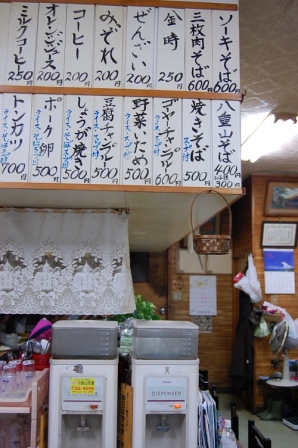 ソーキそば 600円
三枚肉そば 600円
金時 250
ぜんざい 200円
みぞれ 200
コーヒー 200
オレンジジュース 200円
ミルクコーヒー 250円
八重山そば 400円 300円
焼きそば 500円
ゴーヤーチャンプル 600円
野菜いため 500円
豆腐チャンプル 500円
しょうが焼き 500円
ポーク卵 500円
トンカツ 700円
DISPENSER